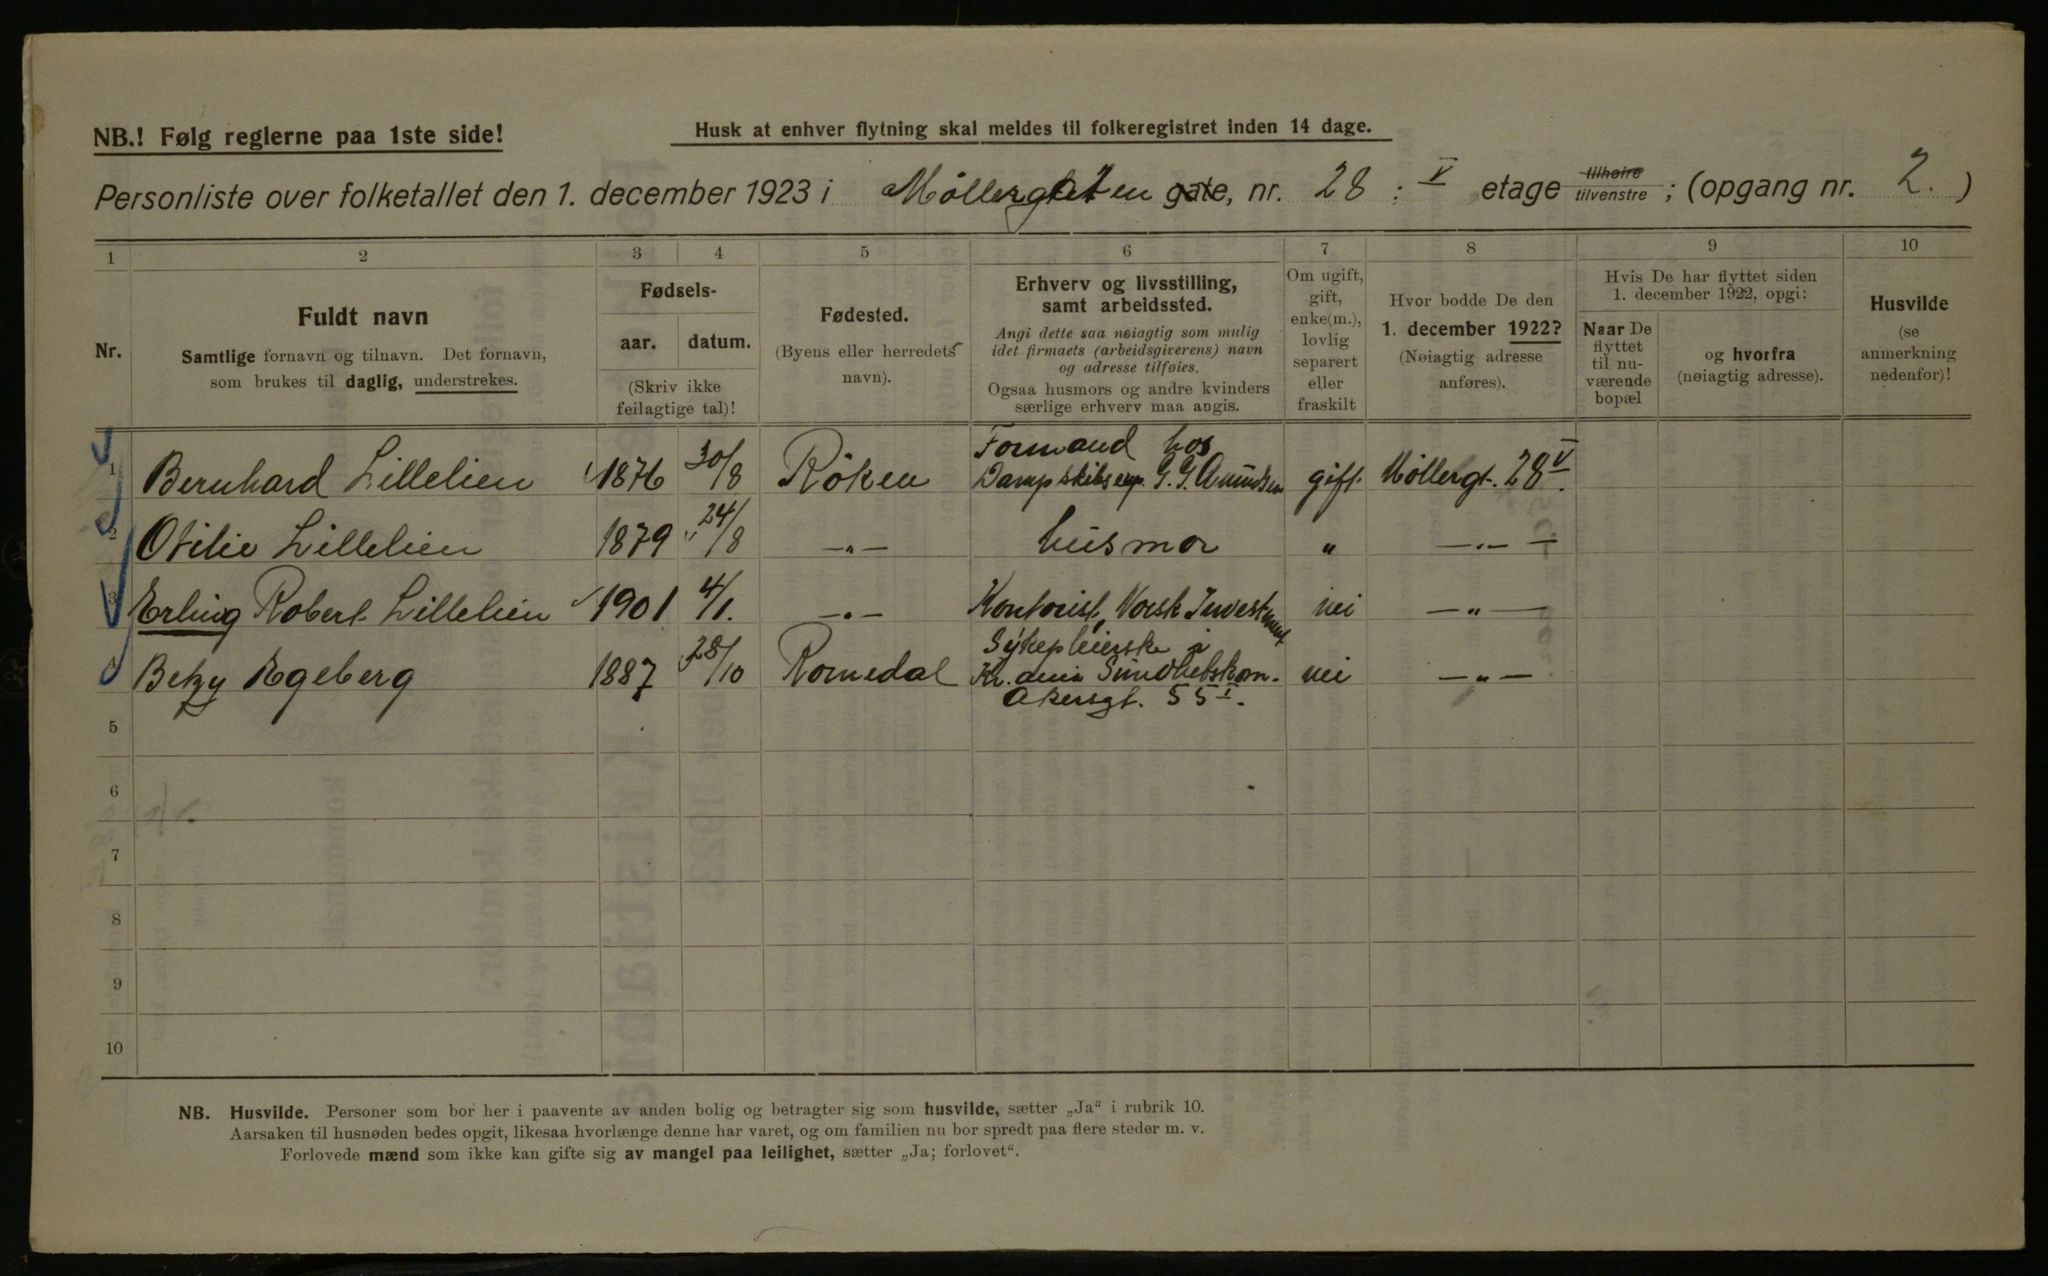 NB.! Følg reglerne paa 1ste side!
Husk at enhver flytning skal meldes til folkeregistret inden 14 dage.
Personliste over folketallet den 1. december 1923 i Møllergaten gate, nr. 28 : V etage tilhøire tilvenstre ; (opgang nr. 2. )
1 2 3 4 5 6 7 8 9 10
Nr.
Fuldt navn
Samtlige fornavn og tilnavn. Det fornavn,
som brukes til daglig, understrekes.
Fødsels-
aar. datum.
(Skriv ikke
feilagtige tal)!
Fødested.
(Byens eller herredets
navn).
Erhverv og livsstilling,
samt arbeidssted.
Angi dette saa nøiagtig som mulig
idet firmaets (arbeidsgiverens) navn
og adresse tilføies.
Ogsaa husmors og andre kvinders
særlige erhverv maa angis.
Om ugift,
gift,
enke(m.),
lovlig
separert
eller
fraskilt
Hvor bodde De den
1. december 1922?
(Nøiagtig adresse
anføres).
Hvis De har flyttet siden
1. december 1922, opgi:
Naar De
flyttet
til nu-
værende
bopæl
og hvorfra
(nøiagtig adresse).
Husvilde
(se
anmerkning
nedenfor)!
1 Bernhard Lillelien 1876 30/8 Röken Formand hos
Dampskibsexp. G. G. Amundsen gift Møllergt. 28 V.
2 Otilie Lillelien 1879 24/8 —„— husmor „ —„—
3 Erling Robert Lillelien 1901 4/1. —„— Kontorist, Norsk Investment nei —„—
4 Betzy Egeberg 1887 28/10 Romedal Sykepleierske i
Kr.ania Sundhetskom.
Akersgt. 55 I. nei —„—
5
6
7
8
9
10
NB. Husvilde. Personer som bor her i paavente av anden bolig og betragter sig som husvilde, sætter „Ja“ i rubrik 10.
Aarsaken til husnøden bedes opgit, likesaa hvorlænge denne har varet, og om familien nu bor spredt paa flere steder m. v.
Forlovede mænd som ikke kan gifte sig av mangel paa leilighet, sætter „Ja; forlovet“.